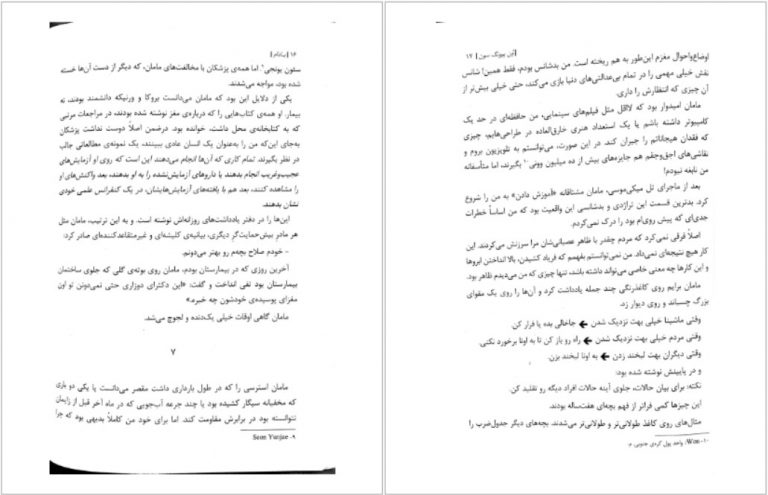 ۱۶ | بادام |
سئون یونجی۹. اما همه‌ی پزشکان با مخالفت‌های مامان، که دیگر از دست آن‌ها خسته
شده بود، مواجه می‌شدند.
یکی از دلایل این بود که مامان می‌دانست بروکا و ورنیکه دانشمند بودند، نه
بیمار. او همه‌ی کتاب‌هایی را که درباره‌ی مغز نوشته شده بودند، در مراجعات مرتبی
که به کتابخانه‌ی محل داشت، خوانده بود. درضمن اصلاً دوست نداشت پزشکان
به‌جای این‌که من را به‌عنوان یک انسان عادی ببینند، یک نمونه‌ی مطالعاتی جالب
در نظر بگیرند. تمام کاری که آن‌ها انجام می‌دهند این است که روی او آزمایش‌های
عجیب‌وغریب انجام بدهند یا داروهای آزمایش‌نشده را به او بدهند، بعد واکنش‌های او
را مشاهده کنند، بعد هم با یافته‌های آزمایش‌هایشان، در یک کنفرانس علمی خودی
نشان بدهند.
این‌ها را در دفتر یادداشت‌های روزانه‌اش نوشته است. و به این ترتیب، مامان مثل
هر مادر بیش‌حمایت‌گر دیگری، بیانیه‌ی کلیشه‌ای و غیرمتقاعدکننده‌ای صادر کرد:
- خودم صلاح بچه‌م رو بهتر می‌دونم.
آخرین روزی که در بیمارستان بودم، مامان روی بوته‌ی گلی که جلوی ساختمان
بیمارستان بود تفی انداخت و گفت: «این دکترای دوزاری حتی نمی‌دونن تو اون
مغزای پوسیده‌ی خودشون چه خبره.»
مامان گاهی اوقات خیلی یک‌دنده و لجوج می‌شد.
۷
مامان استرسی را که در طول بارداری داشت مقصر می‌دانست یا یکی دو باری
که مخفیانه سیگار کشیده بود یا چند جرعه آب‌جویی که در ماه آخر قبل از زایمان
نتوانسته بود در برابرش مقاومت کند. اما برای خود من کاملاً بدیهی بود که چرا
۹- Seon Yunjae
| وُن پیونگ سون | ۱۷
اوضاع‌واحوال مغزم این‌طور به هم ریخته است. من بدشانس بودم، فقط همین! شانس
نقش خیلی مهمی را در تمام بی‌عدالتی‌های دنیا بازی می‌کند، حتی خیلی بیش‌تر از
آن چیزی که انتظارش را داری.
مامان امیدوار بود که لااقل مثل فیلم‌های سینمایی، من حافظه‌ای در حد یک
کامپیوتر داشته باشم یا یک استعداد هنری خارق‌العاده در طراحی‌هایم، چیزی
که فقدان هیجاناتم را جبران کند. در این صورت، می‌توانستم به تلویزیون بروم و
نقاشی‌های اجق‌وجقم هم جایزه‌های بیش از ده میلیون وونی۱۰ بگیرند، اما متأسفانه
من نابغه نبودم!
بعد از ماجرای تل میکی‌موسی، مامان مشتاقانه «آموزش دادن» به من را شروع
کرد. بدترین قسمت این تراژدی و بدشانسی این واقعیت بود که من اساساً خطرات
جدی‌ای که پیش روی‌ام بود را درک نمی‌کردم.
اصلاً فرقی نمی‌کرد که مردم چقدر با ظاهر عصبانی‌شان مرا سرزنش می‌کردند. این
کار هیچ نتیجه‌ای نمی‌داد. من نمی‌توانستم بفهمم که فریاد کشیدن، بالا انداختن ابروها
و این کارها چه معنی خاصی می‌تواند داشته باشد، تنها چیزی که من می‌دیدم ظاهر بود.
مامان برایم روی کاغذرنگی چند جمله یادداشت کرد و آن‌ها را روی یک مقوای
بزرگ چسباند و روی دیوار زد.
وقتی ماشینا خیلی بهت نزدیک شدن ← جاخالی بده یا فرار کن.
وقتی مردم خیلی بهت نزدیک شدن ← راه رو باز کن تا به اونا برخورد نکنی.
وقتی دیگران بهت لبخند زدن ← به اونا لبخند بزن.
و در پایینش نوشته شده بود:
نکته: برای بیان حالات، جلوی آینه حالات افراد دیگه رو تقلید کن.
این چیزها کمی فراتر از فهم بچه‌ای هفت‌ساله بودند.
مثال‌های روی کاغذ طولانی‌تر و طولانی‌تر می‌شدند. بچه‌های دیگر جدول‌ضرب را
۱۰- Won: واحد پول کره‌ی جنوبی. م